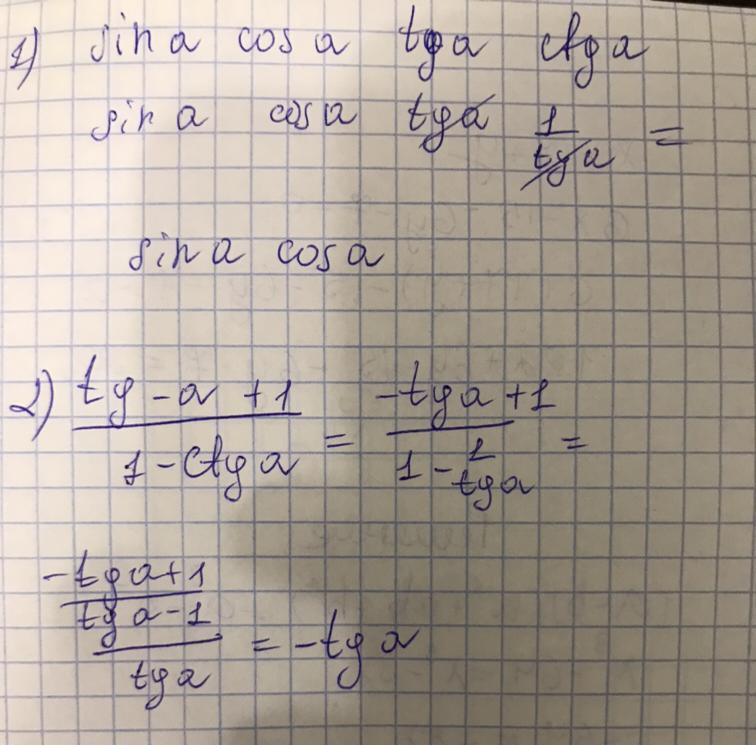 1) sin a cos a tg a ctg a
sin a cos a tg a 1/tg a =
sin a cos a
2) (tg -a +1)/(1 - ctg a) = (-tg a +1)/(1 - 1/tg a) =
(-tg a +1)/((tg a -1)/tg a) = -tg a